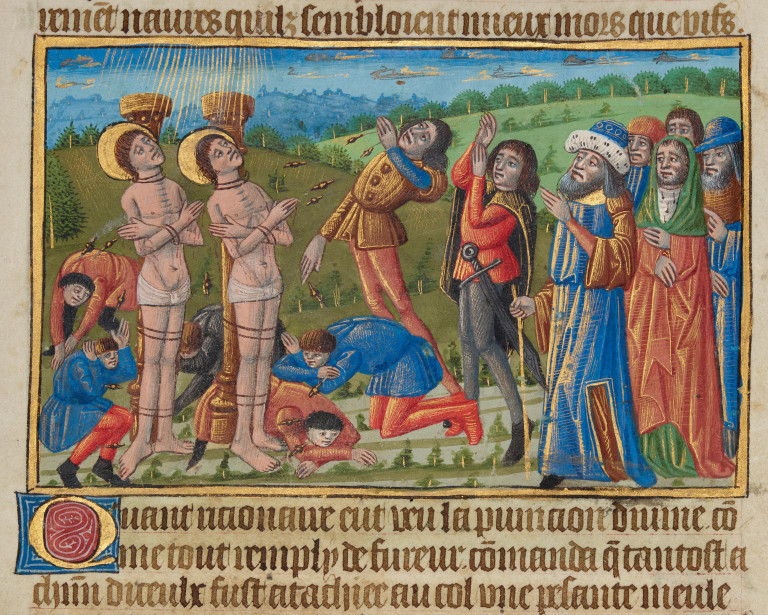 remēt naures quilz sembloient mieux mors que vifs.
Quant ricionaire eut veu la punicion diuine. cō
me tout remply de fureur. cōmanda q̄ tantost a
chūn diceulx fust atachiee au col vne pesante meule